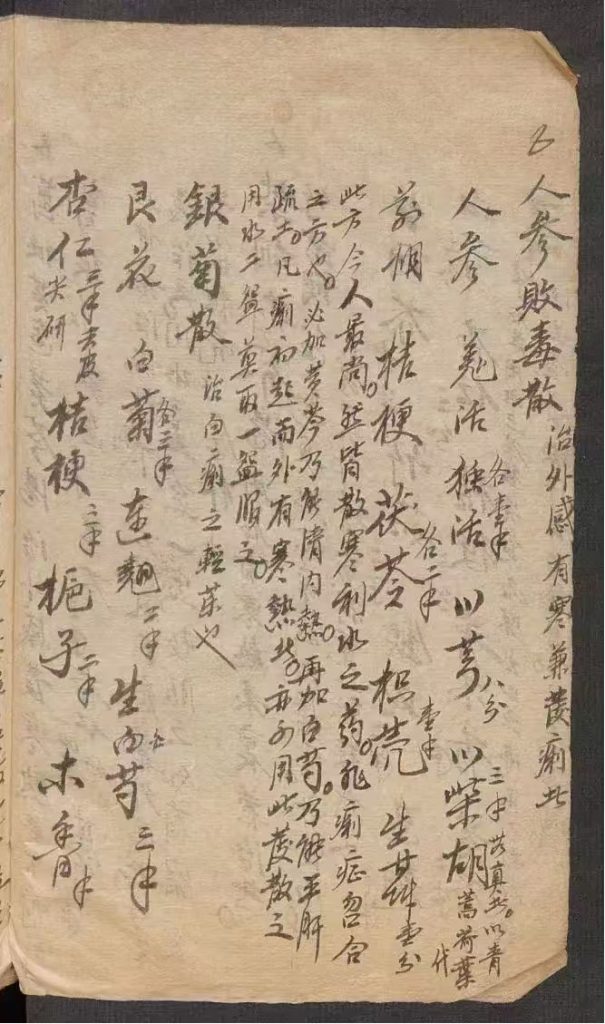 人參敗毒散 治外感有寒兼發痢此
人參 羌活 独活各壹半 川芎八分 川柴胡三半 若真出以青蒿荷葉代
前胡 桔梗 茯苓各二半 枳壳壹半 生甘艸壹分
此方今人最尚然皆散寒利水之药非痢症合
之方也必加黄芩乃能清内熱再加白芍乃能平肝
疏土凡痢初起而外有寒熱此亦可用此發散之
用水二盌煎取一盌服之
銀菊散 治白痢之輕菜也
艮花 白菊各三半 連翹二半 生白芍三半
杏仁三半去皮尖研 桔梗二半 梔子二半 木香半